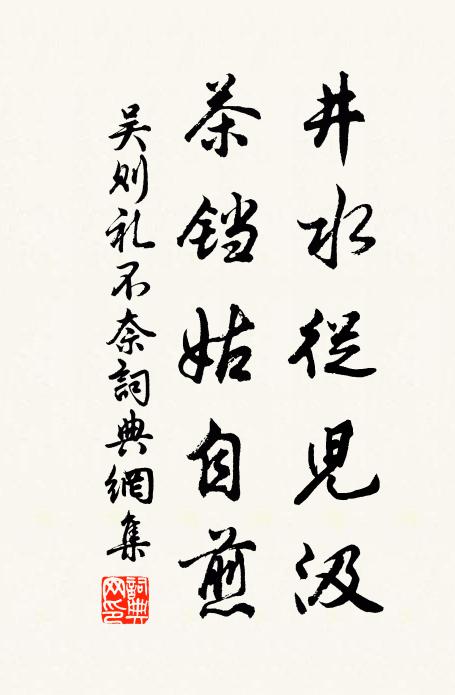 井水從兒汲
茶铛姑自煎
吴则礼不奈詞典網集
詞典网印